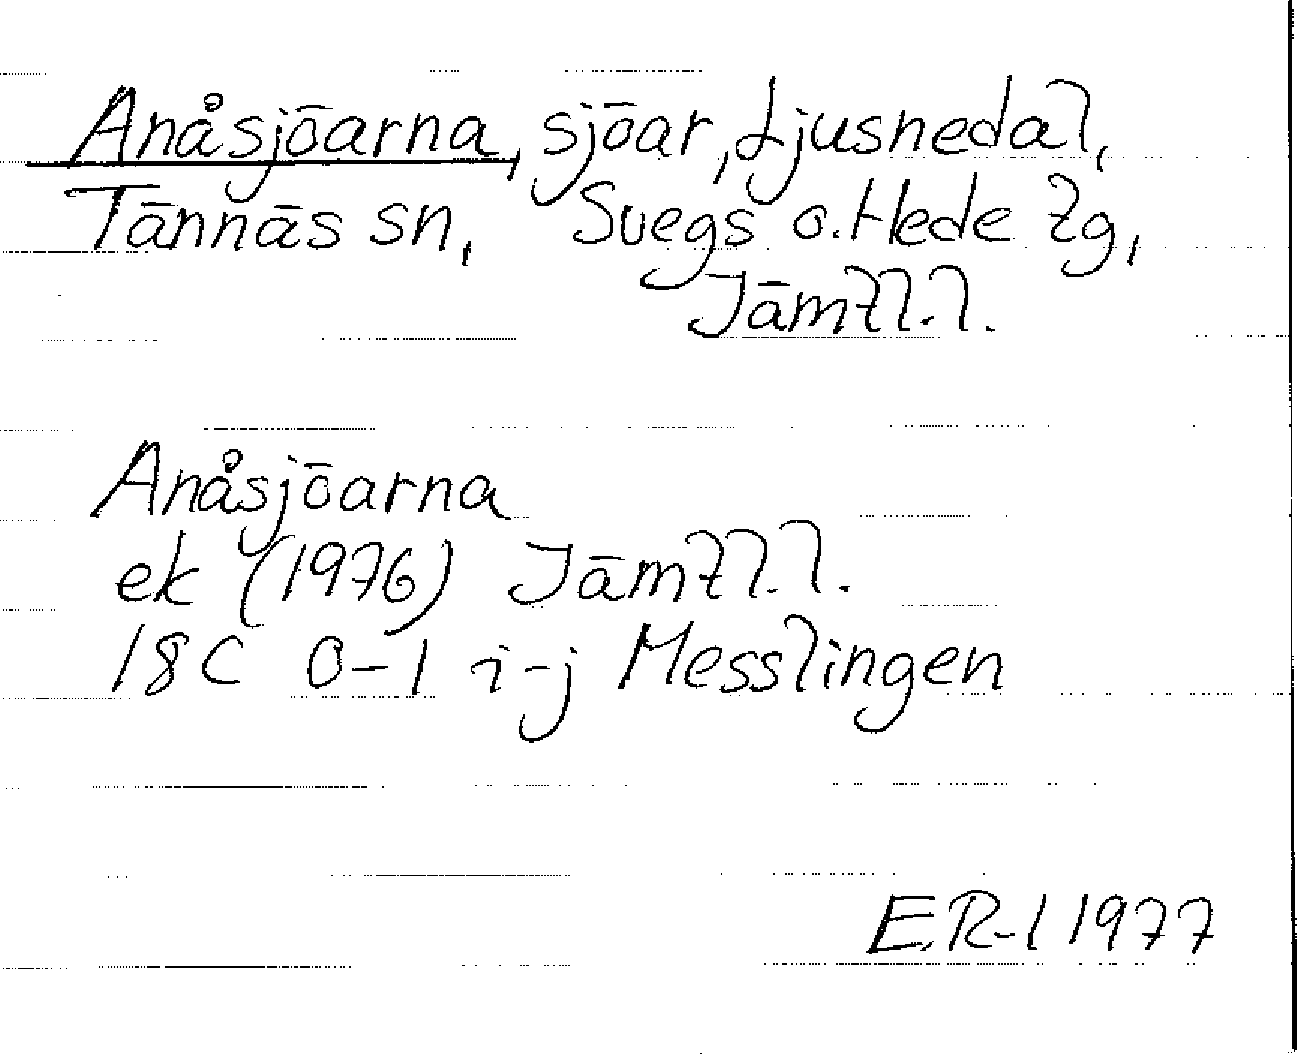 Anåsjöarna, sjöar, Ljusnedal,
Tännäs sn, Svegs o. Hede tg,
Jämtl. l.
Anåsjöarna
ek (1976) Jämtl. l.
18C 0-1 i-j Messlingen
E.R-l 1977